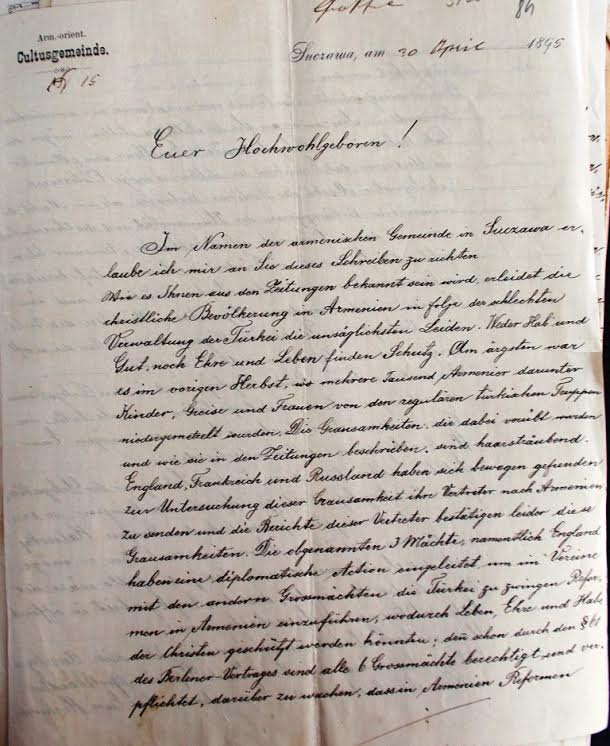 84
Arm.-orient.
Cultusgemeinde.
№ 15
Suczawa, am 30 April 1895
Euer Hochwohlgeboren!
Im Namen der armenischen Gemeinde in Suczawa er-
laube ich mir an Sie dieses Schreiben zu richten
Wie es Ihnen aus den Zeitungen bekannt sein wird, erleidet die
christliche Bevölkerung in Armenien in folge der schlechten
Verwaltung der Türkei die unsäglichsten Leiden. Weder Hab und
Gut, noch Ehre und Leben finden Schutz. Am ärgsten war
es im vorigen Herbst, wo mehrere Tausend Armenier darunter
Kinder, Greise und Frauen von den regulären türkischen Truppen
niedergemetzelt wurden. Die Grausamkeiten, die dabei verübt wurden
und wie sie in den Zeitungen beschrieben, sind haarsträubend.
England, Frankreich und Russland haben sich bewogen gefunden
zur Untersuchung dieser Grausamkeit ihre Vertreter nach Armenien
zu senden und die Berichte dieser Vertreter bestätigen leider diese
Grausamkeiten. Die obgenannten 3 Mächte, namentlich England
haben eine diplomatische Action eingeleitet, um im Vereine
mit den andern Grossmächten die Türkei zu zwingen Refor-
men in Armenien einzuführen, wodurch Leben Ehre und Habe
der Christen geschützt werden könnten; denn schon durch den § 61
des Berliner-Vertrages sind alle 6 Grossmächte berechtigt und ver-
pflichtet, darüber zu wachen, dass in Armenien Reformen